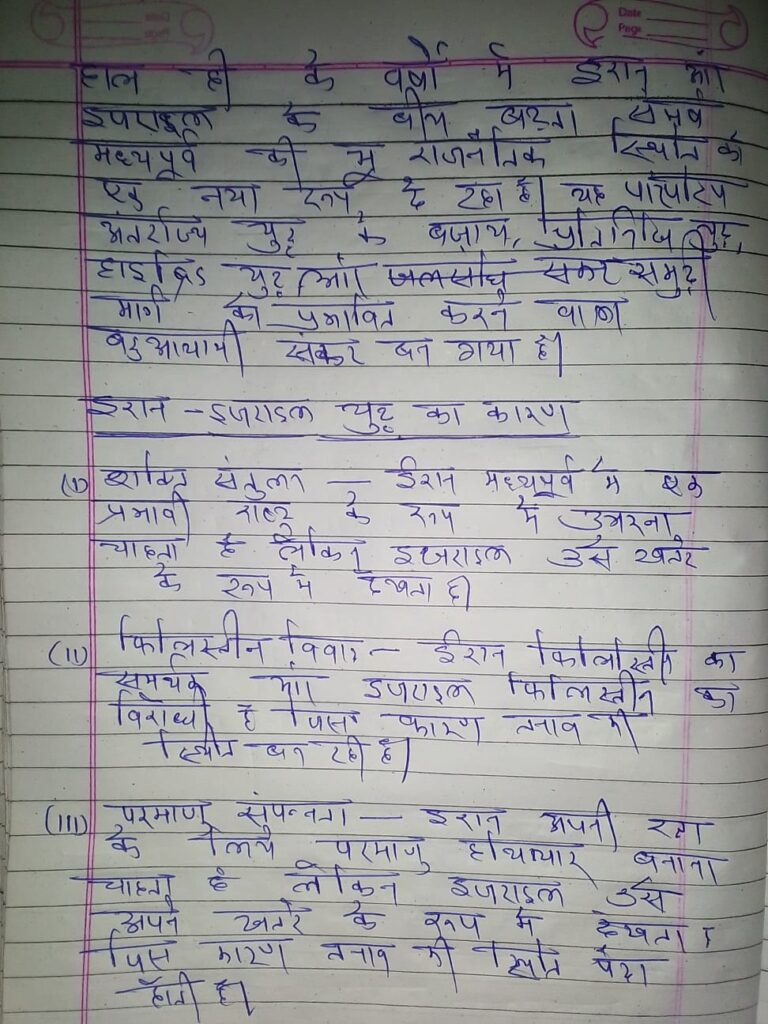 Date
Page
हाल ही के वर्षो में ईरान और
इजराइल के बीच बढ़ता संघर्ष
मध्यपूर्व की भू राजनीतिक स्थिति को
एक नया रूप दे रहा है। यह पारंपरिप
अंतर्राज्य युद्ध के बजाय, प्रतिनिधि युद्ध,
हाईब्रिड युद्ध और जलसंधि संकट समुद्री
मार्ग को प्रभावित करने वाला
बहुआयामी संकट बन गया है।
ईरान - इजराइल युद्ध का कारण
(I) शक्ति संतुलन — ईरान मध्यपूर्व में एक
प्रभावी राष्ट्र के रूप में उभरना
चाहता है लेकिन इजराइल उसे खतरे
के रूप में देखता है।
(II) फिलिस्तीन विवाद — ईरान फिलिस्तीन का
समर्थक और इजराइल फिलिस्तीन का
विरोधी है जिस कारण तनाव की
स्थिति बन रही है।
(III) परमाणु संपन्नता — ईरान अपनी रक्षा
के लिये परमाणु हथियार बनाना
चाहता है लेकिन इजराइल उसे
अपने खतरे के रूप में देखता है
जिस कारण तनाव की स्थिति पैदा
होती है।